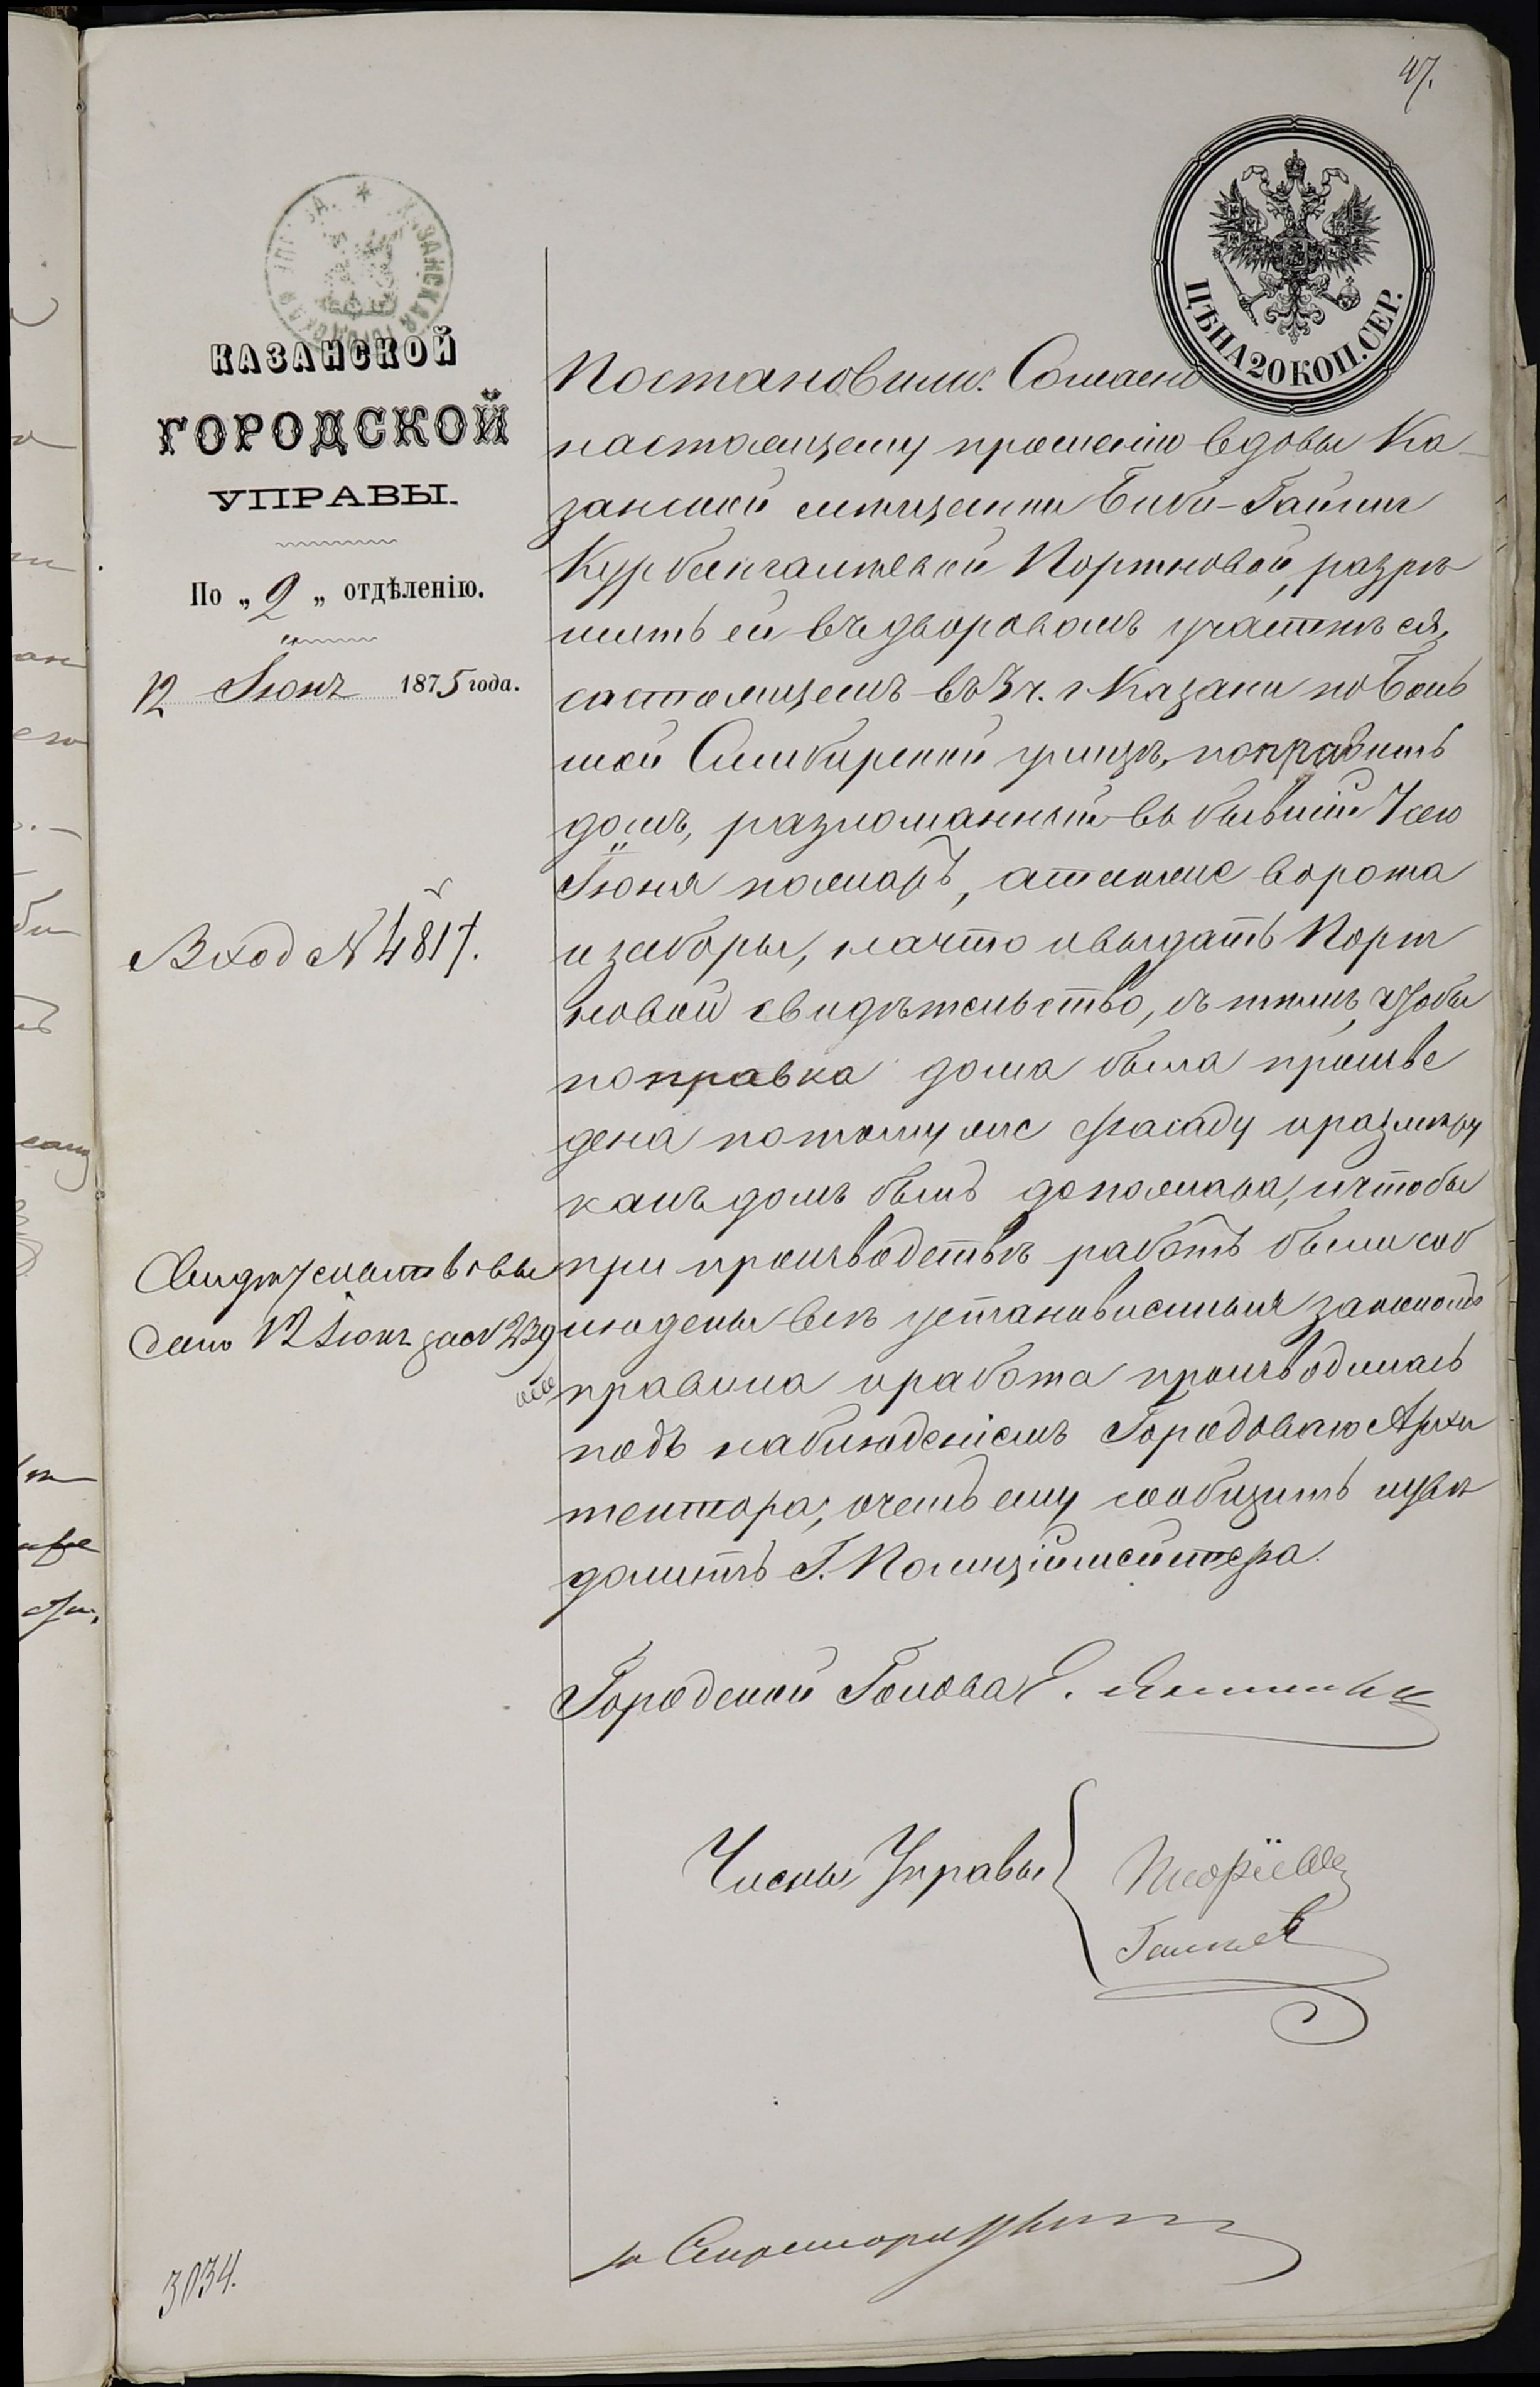 47.
КАЗАНСКАЯ ГОРОДСКАЯ УПРАВА *
ЦѢНА 20 КОП. СЕР.
КАЗАНСКОЙ
ГОРОДСКОЙ
УПРАВЫ.
По „2„ отдѣленію.
12 Іюня 1875 года.
Вход № 4817.
Свидѣтельство вы
дано 12 Іюня за № 239
Постановили: Согласно
настоящему прошенію вдовы Ка-
занской мѣщанки Биби-Гайши
Курбангалѣевой Портновой, разрѣ
шить ей въ дворовомъ участкѣ ея,
состоящемъ въ 3 ч. г. Казани по Боль
шой Симбирской улицѣ, поправить
домъ, разломанный въ бывшій 7 сего
Іюня пожаръ, а также ворота
и заборы, на что и выдать Порт
новой свидѣтельство, съ тѣмъ, чтобы
поправка дома была произве
дена по тому же фасаду и размѣру
какъ домъ былъ до пожара, и чтобы
при производствѣ работъ были соб
людены всѣ установленныя закономъ
правила и работа производилась
подъ наблюденіемъ Городоваго Архи
тектора; о чемъ ему сообщить и увѣ
домить Г. Полиціймейстера.
Городской Голова Е.
Члены Управы
Секретарь
3034.